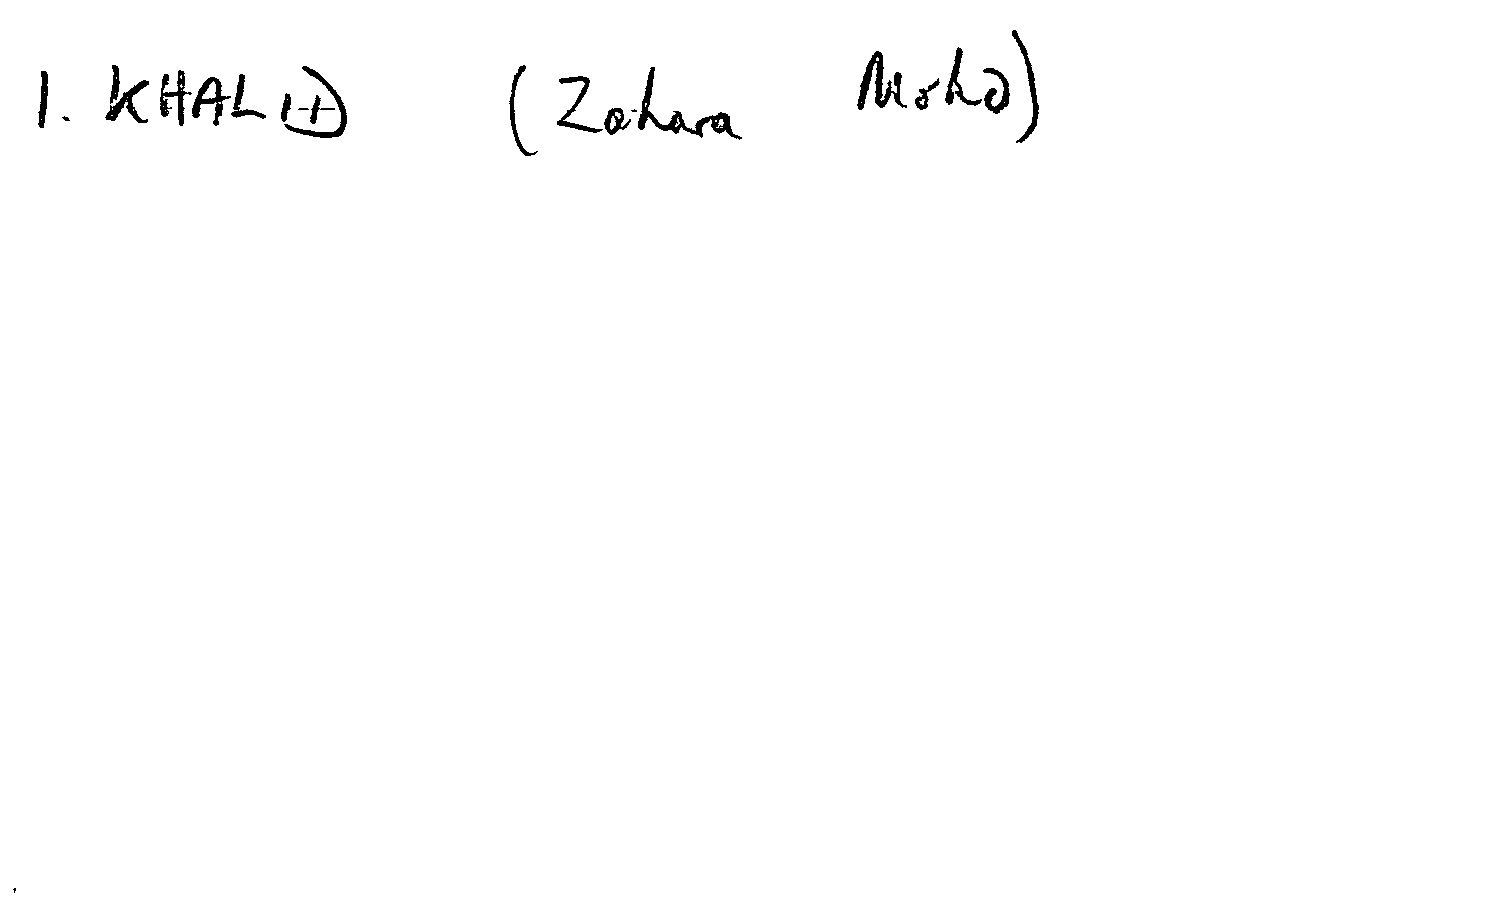 1. KHALID (Zahara Mohd)